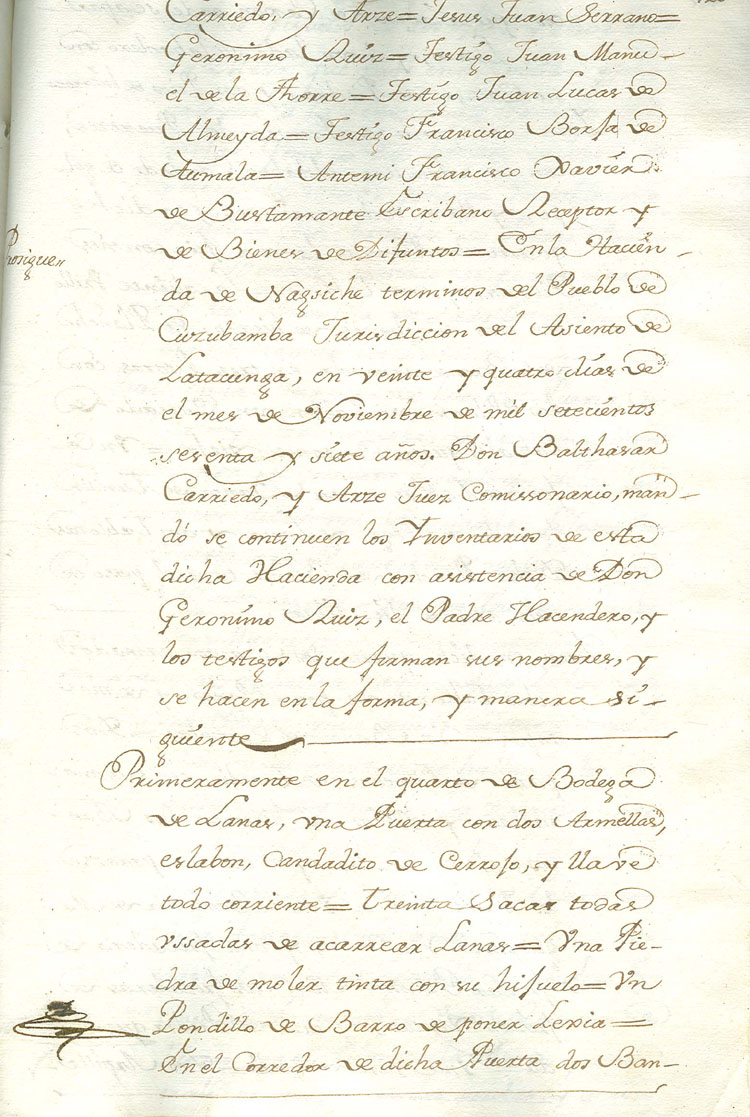 Carriedo, y Arze= Jesus Juan Serrano=
Geronimo Ruiz= Testigo Juan Manu-
el de la Thorre= Testigo Juan Lucas de
Almeyda= Testigo Francisco Borja de
Aumala= Antemi Francisco Xavier
de Bustamante Escribano Receptor y
Prosigue
de Bienes de Difuntos= En la Hacien-
da de Nagsiche terminos del Pueblo de
Cuzubamba Jurisdiccion del Asiento de
Latacunga, en veinte y quatro dias de
el mes de Noviembre de mil setecientos
sesenta y siete años. Don Balthasar
Carriedo, y Arze Juez Comissonario, man-
dó se continuen los Ynventarios de esta
dicha Hacienda con asistencia de Don
Geronimo Ruiz, el Padre Hacendero, y
los testigos que firman sus nombres, y
se hacen en la forma, y manera si-
guiente
Primeramente en el quarto de Bodega
de Lanas, vna Puerta con dos Armellas,
eslabon, Candadito de Cerrojo, y llave
todo corriente= Treinta Sacas todas
vssadas de acarrear Lanas= Vna Pie-
dra de moler tinta con su hijuelo= Vn
Pondillo de Barro de poner Lexia=
En el Corredor de dicha Puerta dos Ban-